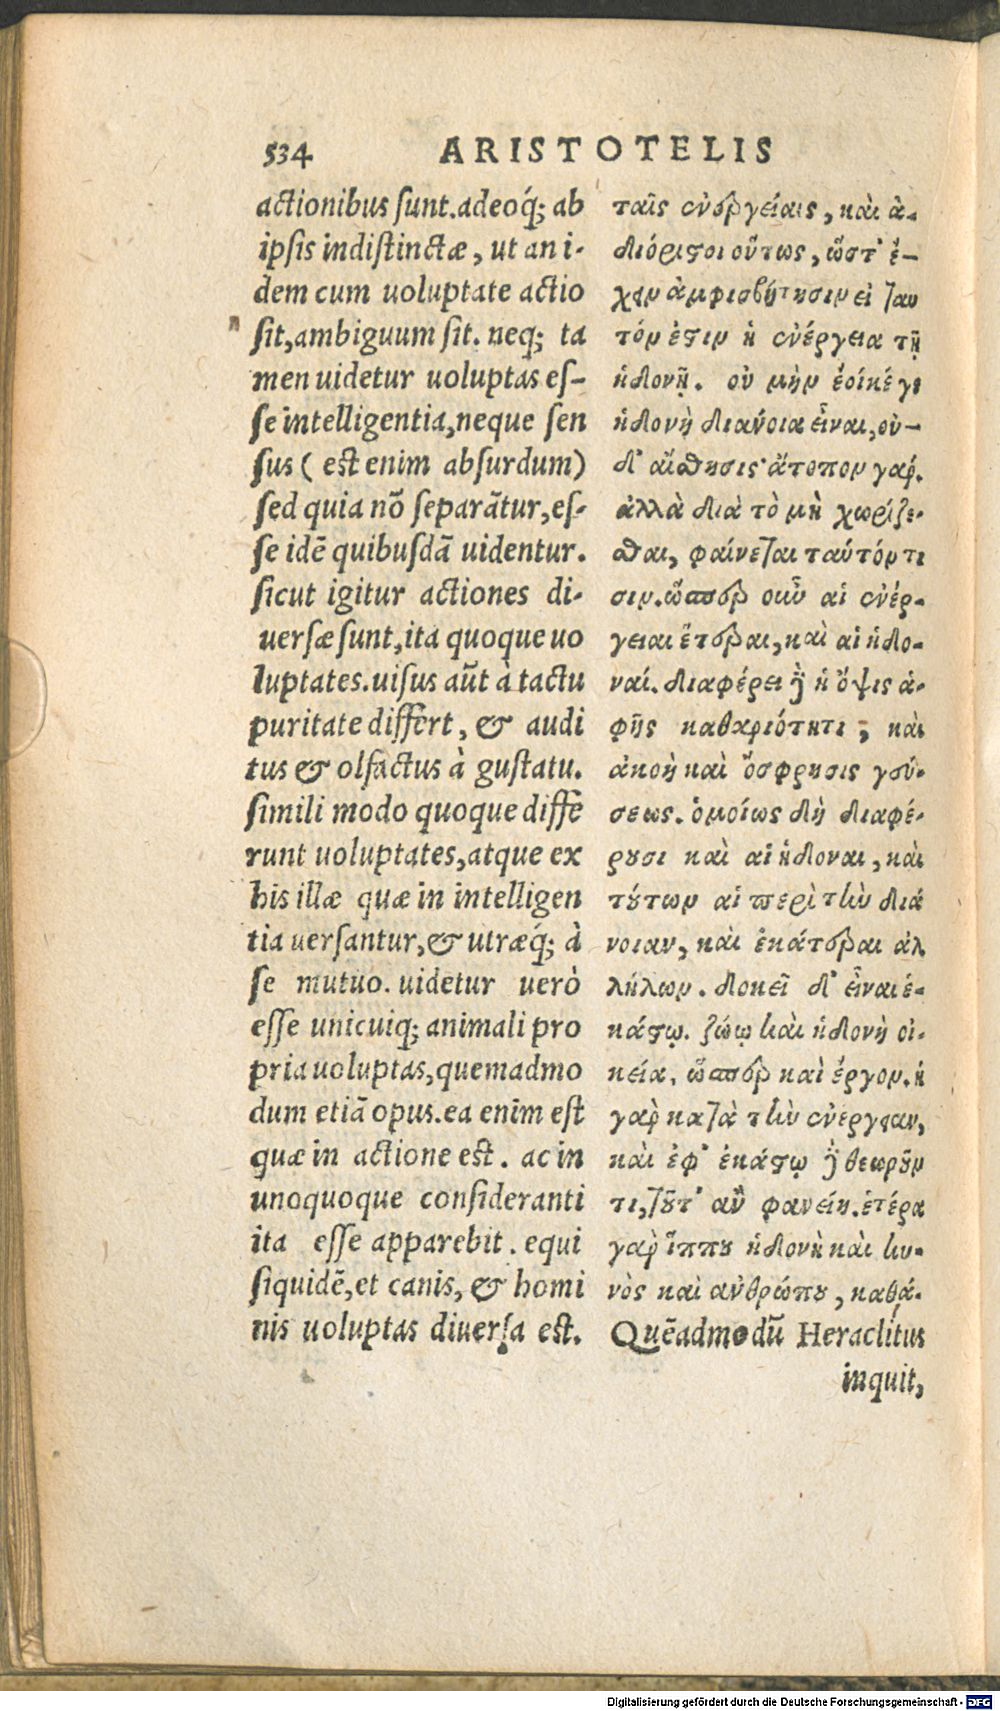 534 ARISTOTELIS
actionibus ſunt.adeoq́; ab
ipſis indiſtinctæ, ut an i-
dem cum uoluptate actio
ſit,ambiguum ſit. neq; ta
men uidetur uoluptas eſ-
ſe intelligentia,neque ſen
ſus ( eſt enim abſurdum)
ſed quia nõ ſeparãtur,eſ-
ſe idẽ quibuſdã uidentur.
ſicut igitur actiones di-
uerſæ ſunt,ita quoque uo
luptates.uiſus aũt à tactu
puritate differt, & audi
tus & olfactus à guſtatu.
ſimili modo quoque diffe
runt uoluptates,atque ex
his illæ quæ in intelligen
tia uerſantur,& utræq́; à
ſe mutuo. uidetur uerò
eſſe unicuiq; animali pro
pria uoluptas,quemadmo
dum etiã opus.ea enim eſt
quæ in actione eſt. ac in
unoquoque conſideranti
ita eſſe apparebit. equi
ſiquidẽ,et canis, & homi
nis uoluptas diuerſa eſt.
ταῖς ἐνεργείαις, καὶ ἀ-
διόριστοι οὕτως, ὥστ' ἔ-
χειν ἀμφισβήτησιν εἰ ταυ
τόν ἐστιν ἡ ἐνέργεια τῇ
ἡδονῇ. οὐ μὴν ἔοικέ γε
ἡδονὴ διάνοια εἶναι, οὐ-
δ' αἴσθησις· ἄτοπον γάρ.
ἀλλὰ διὰ τὸ μὴ χωρίζε-
σθαι, φαίνεται ταὐτόν τι
σιν. ὥσπερ οὖν αἱ ἐνέρ-
γειαι ἕτεραι, καὶ αἱ ἡδο-
ναί. διαφέρει δὲ ἡ ὄψις ἁ-
φῆς καθαριότητι, καὶ
ἀκοὴ καὶ ὄσφρησις γεύ-
σεως. ὁμοίως δὴ διαφέ-
ρουσι καὶ αἱ ἡδοναι, καὶ
τούτων αἱ περὶ τὴν διά
νοιαν, καὶ ἑκάτεραι ἀλ
λήλων. δοκεῖ δ' εἶναι ἑ-
κάστῳ ζώῳ καὶ ἡδονὴ οἰ-
κεία, ὥσπερ καὶ ἔργον. ἡ
γὰρ κατὰ τὴν ἐνέργειαν,
καὶ ἐφ' ἑκάστῳ δὲ θεωροῦν
τι, τοῦτ' ἂν φανείη. ἑτέρα
γὰρ ἵππου ἡδονὴ καὶ κυ-
νὸς καὶ ἀνθρώπου, καθά-
Quẽadmodũ Heraclitus
inquit,
Digitalisierung gefördert durch die Deutsche Forschungsgemeinschaft - DFG